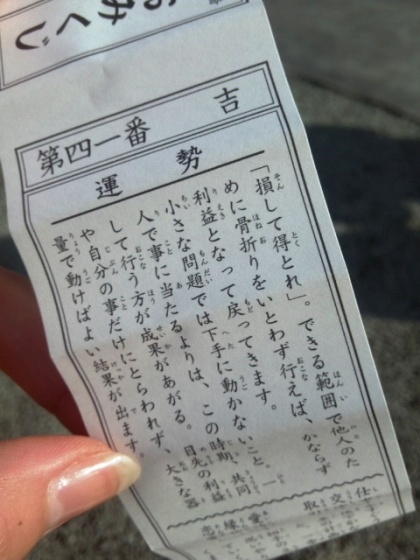 おみくじ
第四一番 吉
運勢
「損して得とれ」。できる範囲で他人のた
めに骨折りをいとわず行えば、かならず
利益となって戻ってきます。
小さな問題では下手に動かないこと。一
人で事に当たるよりは、この時期、共同
して行う方が成果があがる。目先の利益
や自分の事だけにとらわれず、大きな器
量で動けばよい結果が出ます。
仕
交
取
愛
縁
恋